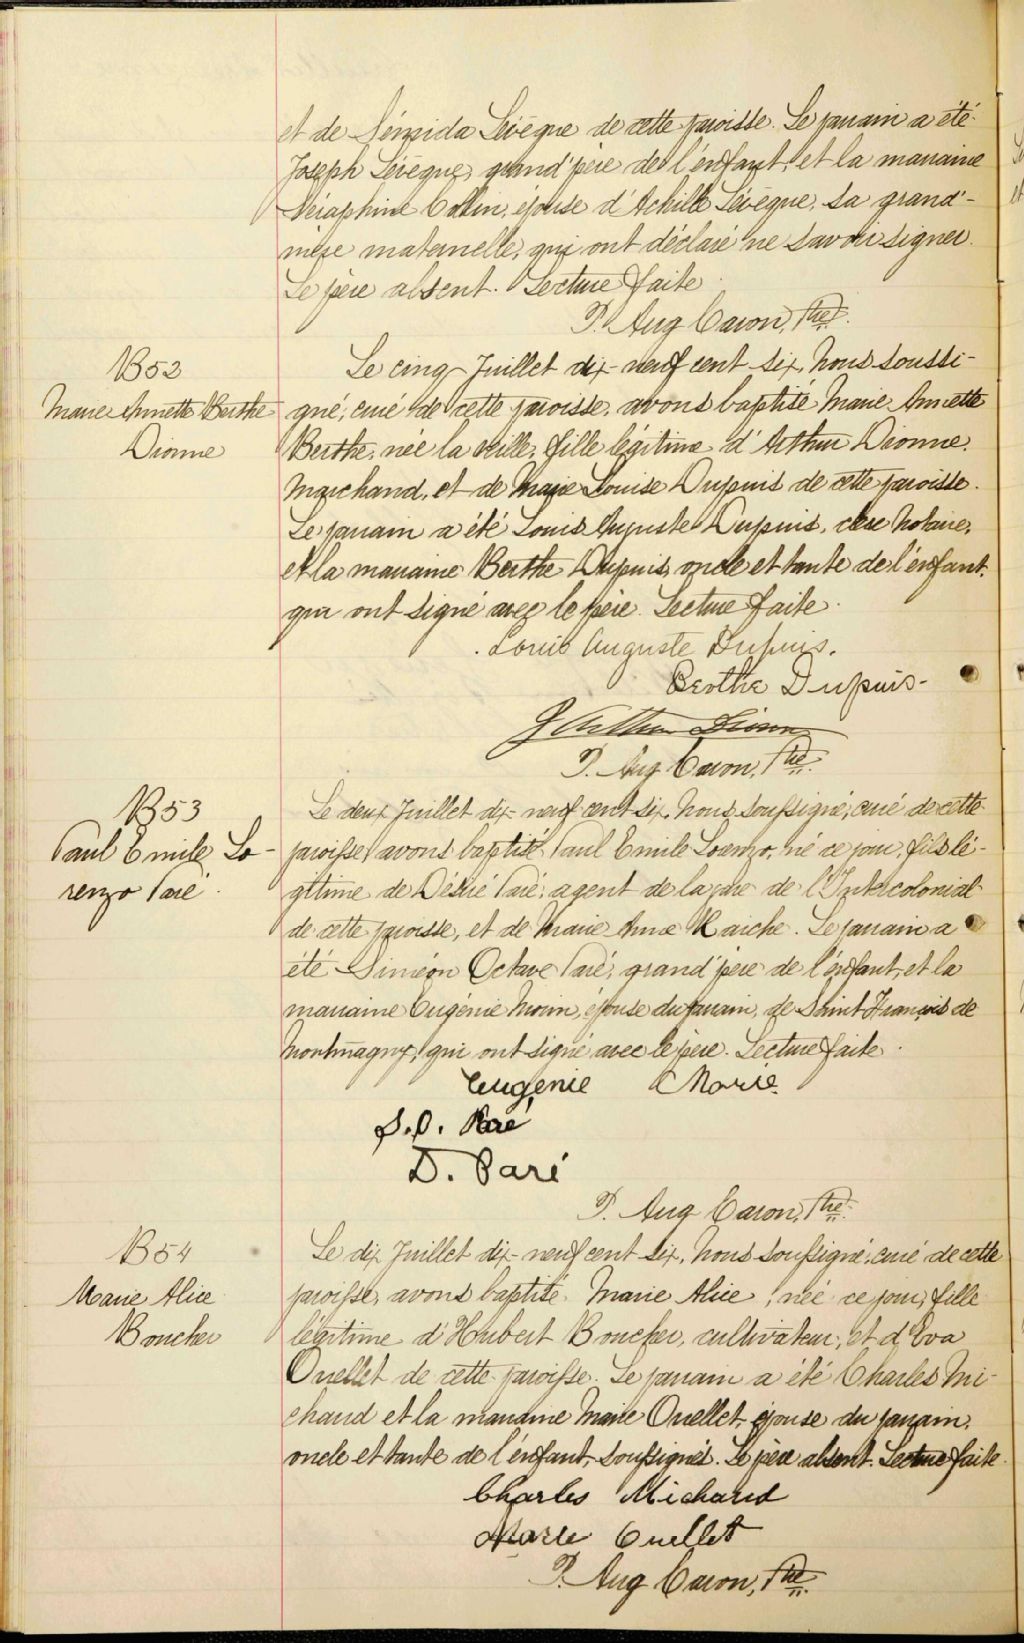 et de Lévesque de cette paroisse. Le parrain a été
Joseph Lévèque, grand'père de l'enfant, et la marraine
Séraphine Collin, épouse d'Achille Lévèque, sa grand'-
mère maternelle, qui ont déclaré ne savoir signer.
Le père absent. Lecture faite
P. Aug Caron, Ptre.
B52
Marie Annette Berthe
Dionne
Le cinq Juillet dix-neuf cent six, Nous soussi-
gné, curé de cette paroisse, avons baptisé Marie Annette
Berthe, née la veille, fille légitime d'Arthur Dionne,
Marchand, et de Marie Louise Dupuis de cette paroisse.
Le parrain a été Louis Auguste Dupuis, clerc Notaire,
et la marraine Berthe Dupuis, oncle et tante de l'enfant,
qui ont signé avec le père. Lecture faite.
Louis Auguste Dupuis.
Berthe Dupuis-
J Arthur Dionne
P. Aug Caron, Ptre.
B53
Paul Emile Lo-
renzo Paré.
Le deux Juillet dix-neuf cent six, Nous, soussigné, curé de cette
paroisse, avons baptisé Paul Emile Lorenzo, né ce jour, fils lé-
gitime de Désiré Paré, agent de la gare de l'Intercolonial
de cette paroisse, et de Marie Anna Raiche. Le parrain a
été Siméon Octave Paré, grand'père de l'enfant, et la
marraine Eugénie Morin, épouse du parrain, de Saint François de
Montmagny, qui ont signé avec le père. Lecture faite.
Eugénie Morie
S.O. Paré
D. Paré
P. Aug Caron, Ptre.
B54
Marie Alice
Boucher
Le dix Juillet dix-neuf cent six, Nous soussigné, curé de cette
paroisse, avons baptisé Marie Alice, née ce jour, fille
légitime d'Hubert Boucher, cultivateur, et d'Eva
Ouellet de cette paroisse. Le parrain a été Charles Mi-
chaud et la marraine Marie Ouellet, épouse du parrain,
oncle et tante de l'enfant, soussignés. Le père absent. Lecture faite.
Charles Michaud
Marie Ouellet
P. Aug Caron, Ptre.